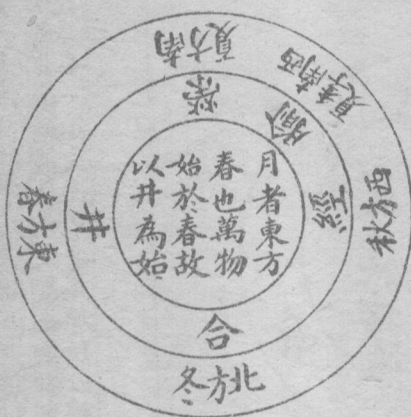 月者東方
春也萬物
始於春故
以井為始
井
滎
腧
經
合
東方春
南方夏
西南季夏
西方秋
北方冬